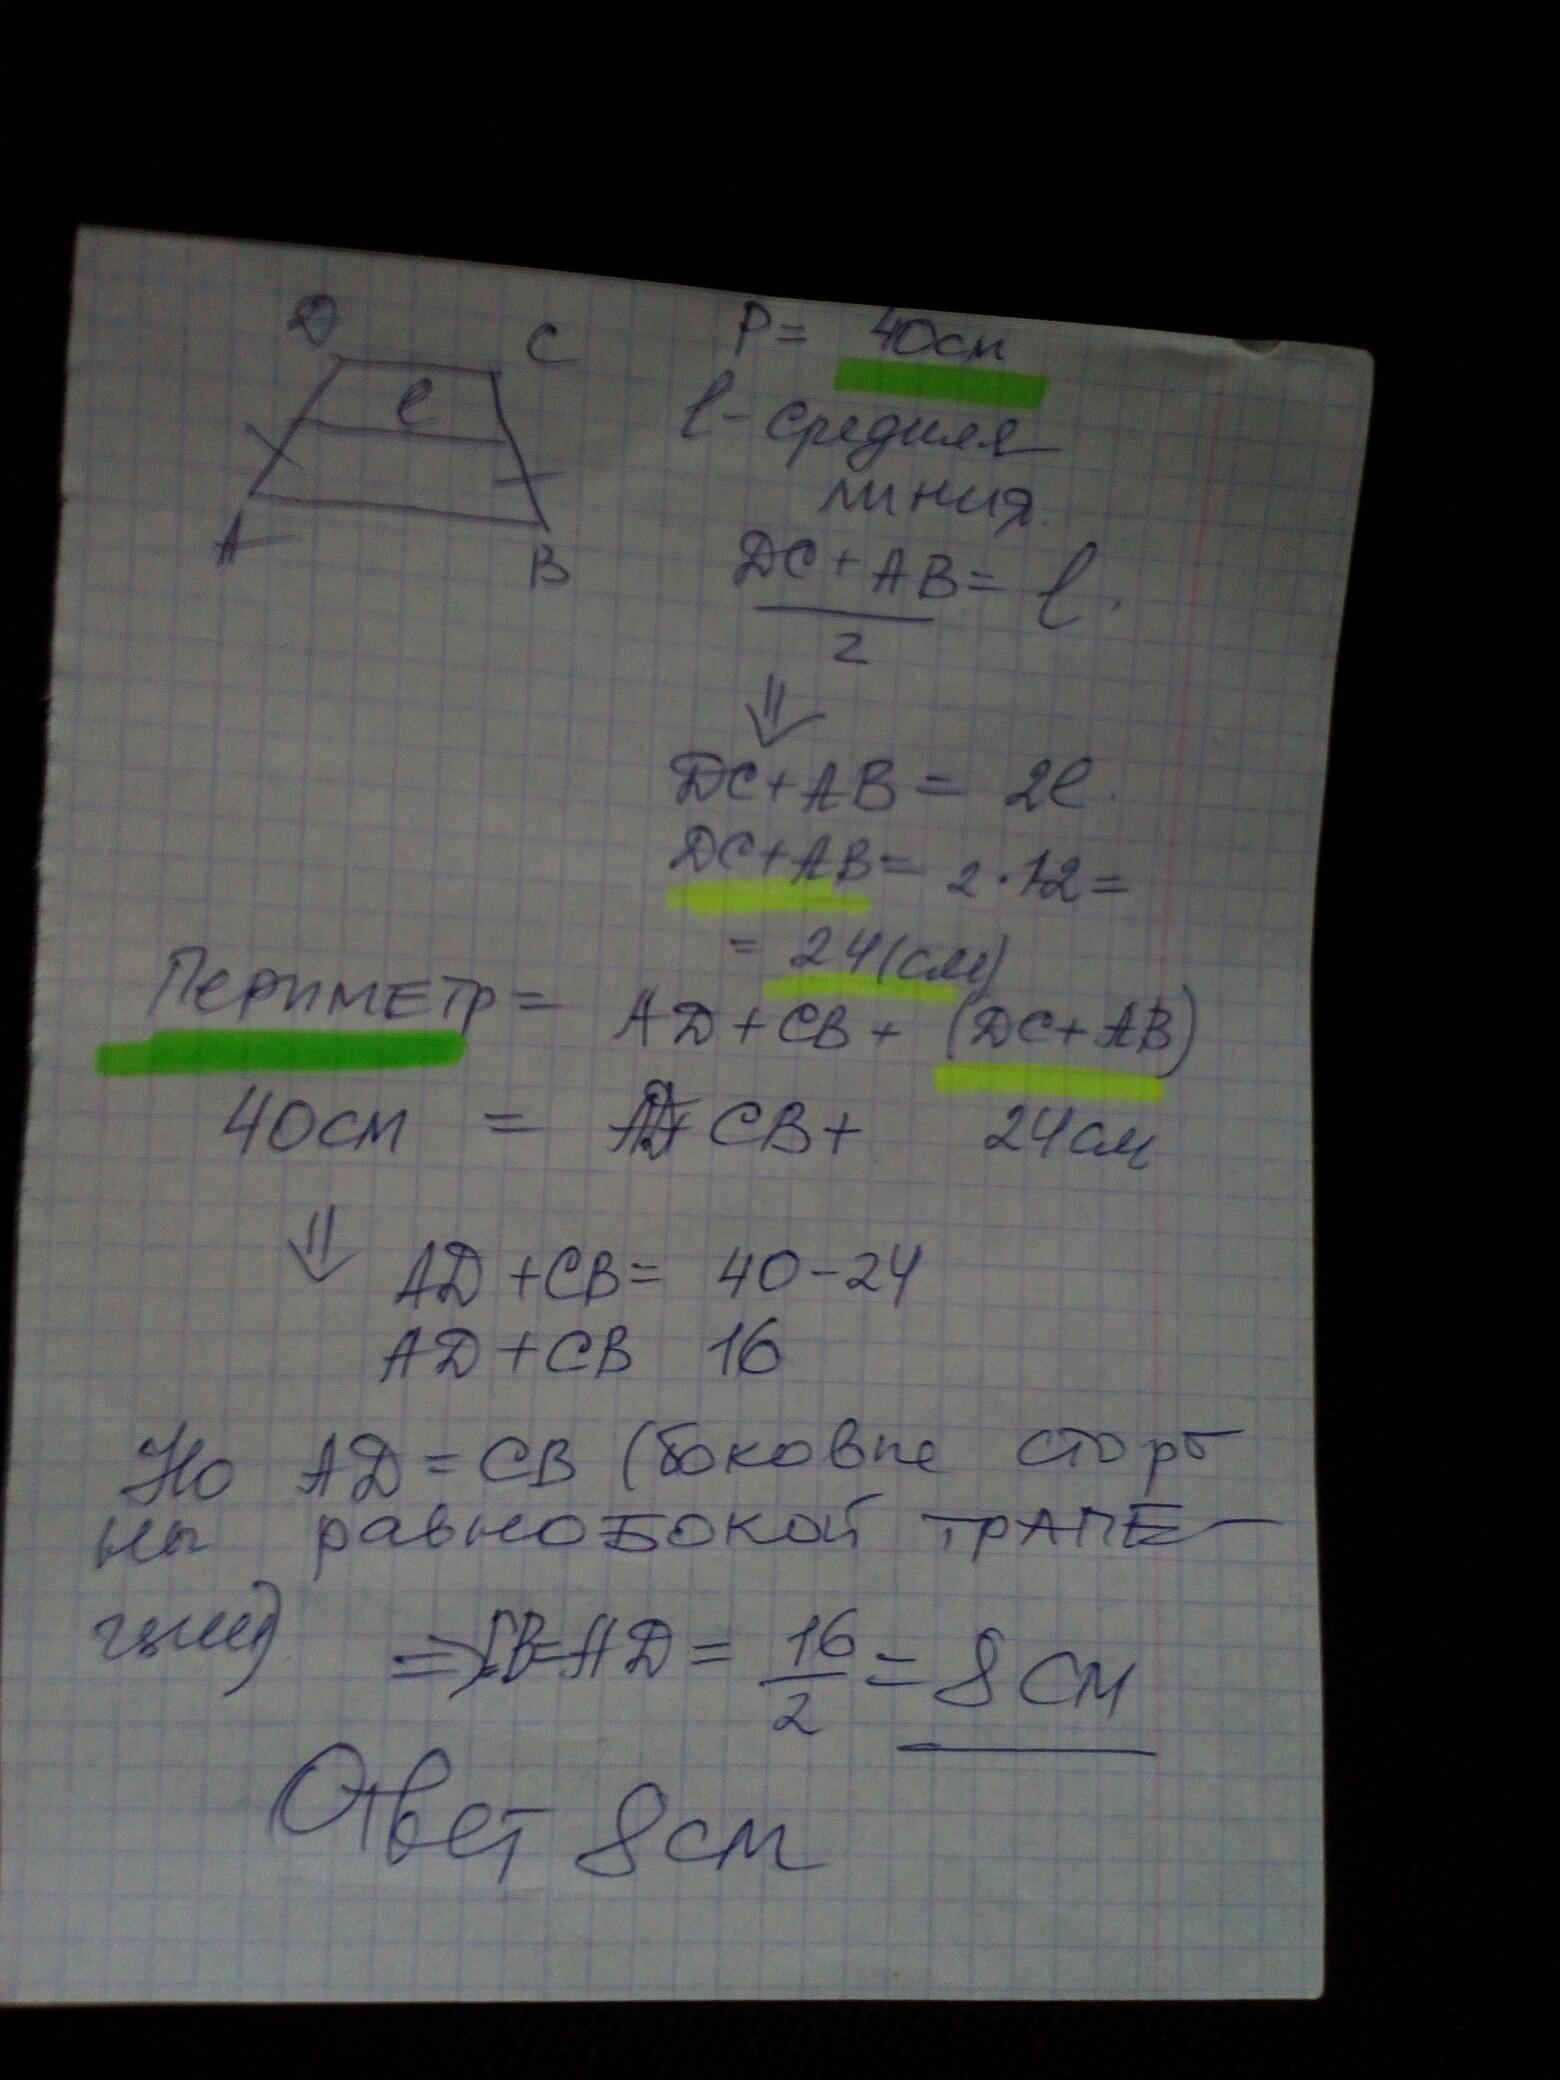 D C
P = 40см
l
l - средняя
линия.
A B
DC + AB = l.
2
⇓
DC + AB = 2l.
DC + AB = 2 · 12 =
= 24 (см)
Периметр = AD + CB + (DC + AB)
40см = AD+ CB + 24см
⇓ AD + CB = 40 - 24
AD + CB 16
Но AD = CB (боковые сторо
ны равнобокой трапе-
ции)
⇒ CB = AD = 16/2 = 8 см
Ответ 8 см